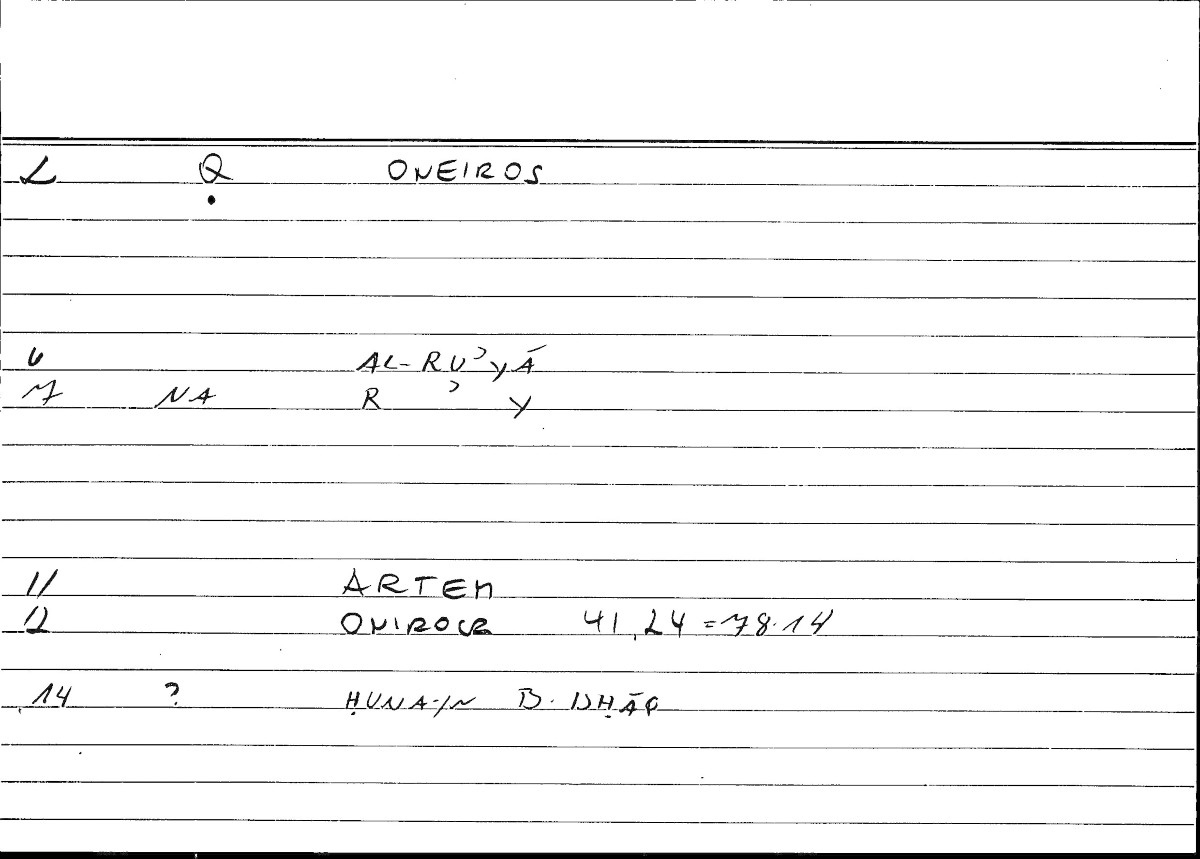 2 Q ONEIROS
6 AL-RUʾYĀ
7 NA R ʾ Y
11 ARTEM
12 ONIROCR 41,24 = 78.14
14 ? ḤUNAIN B. ISḤĀQ